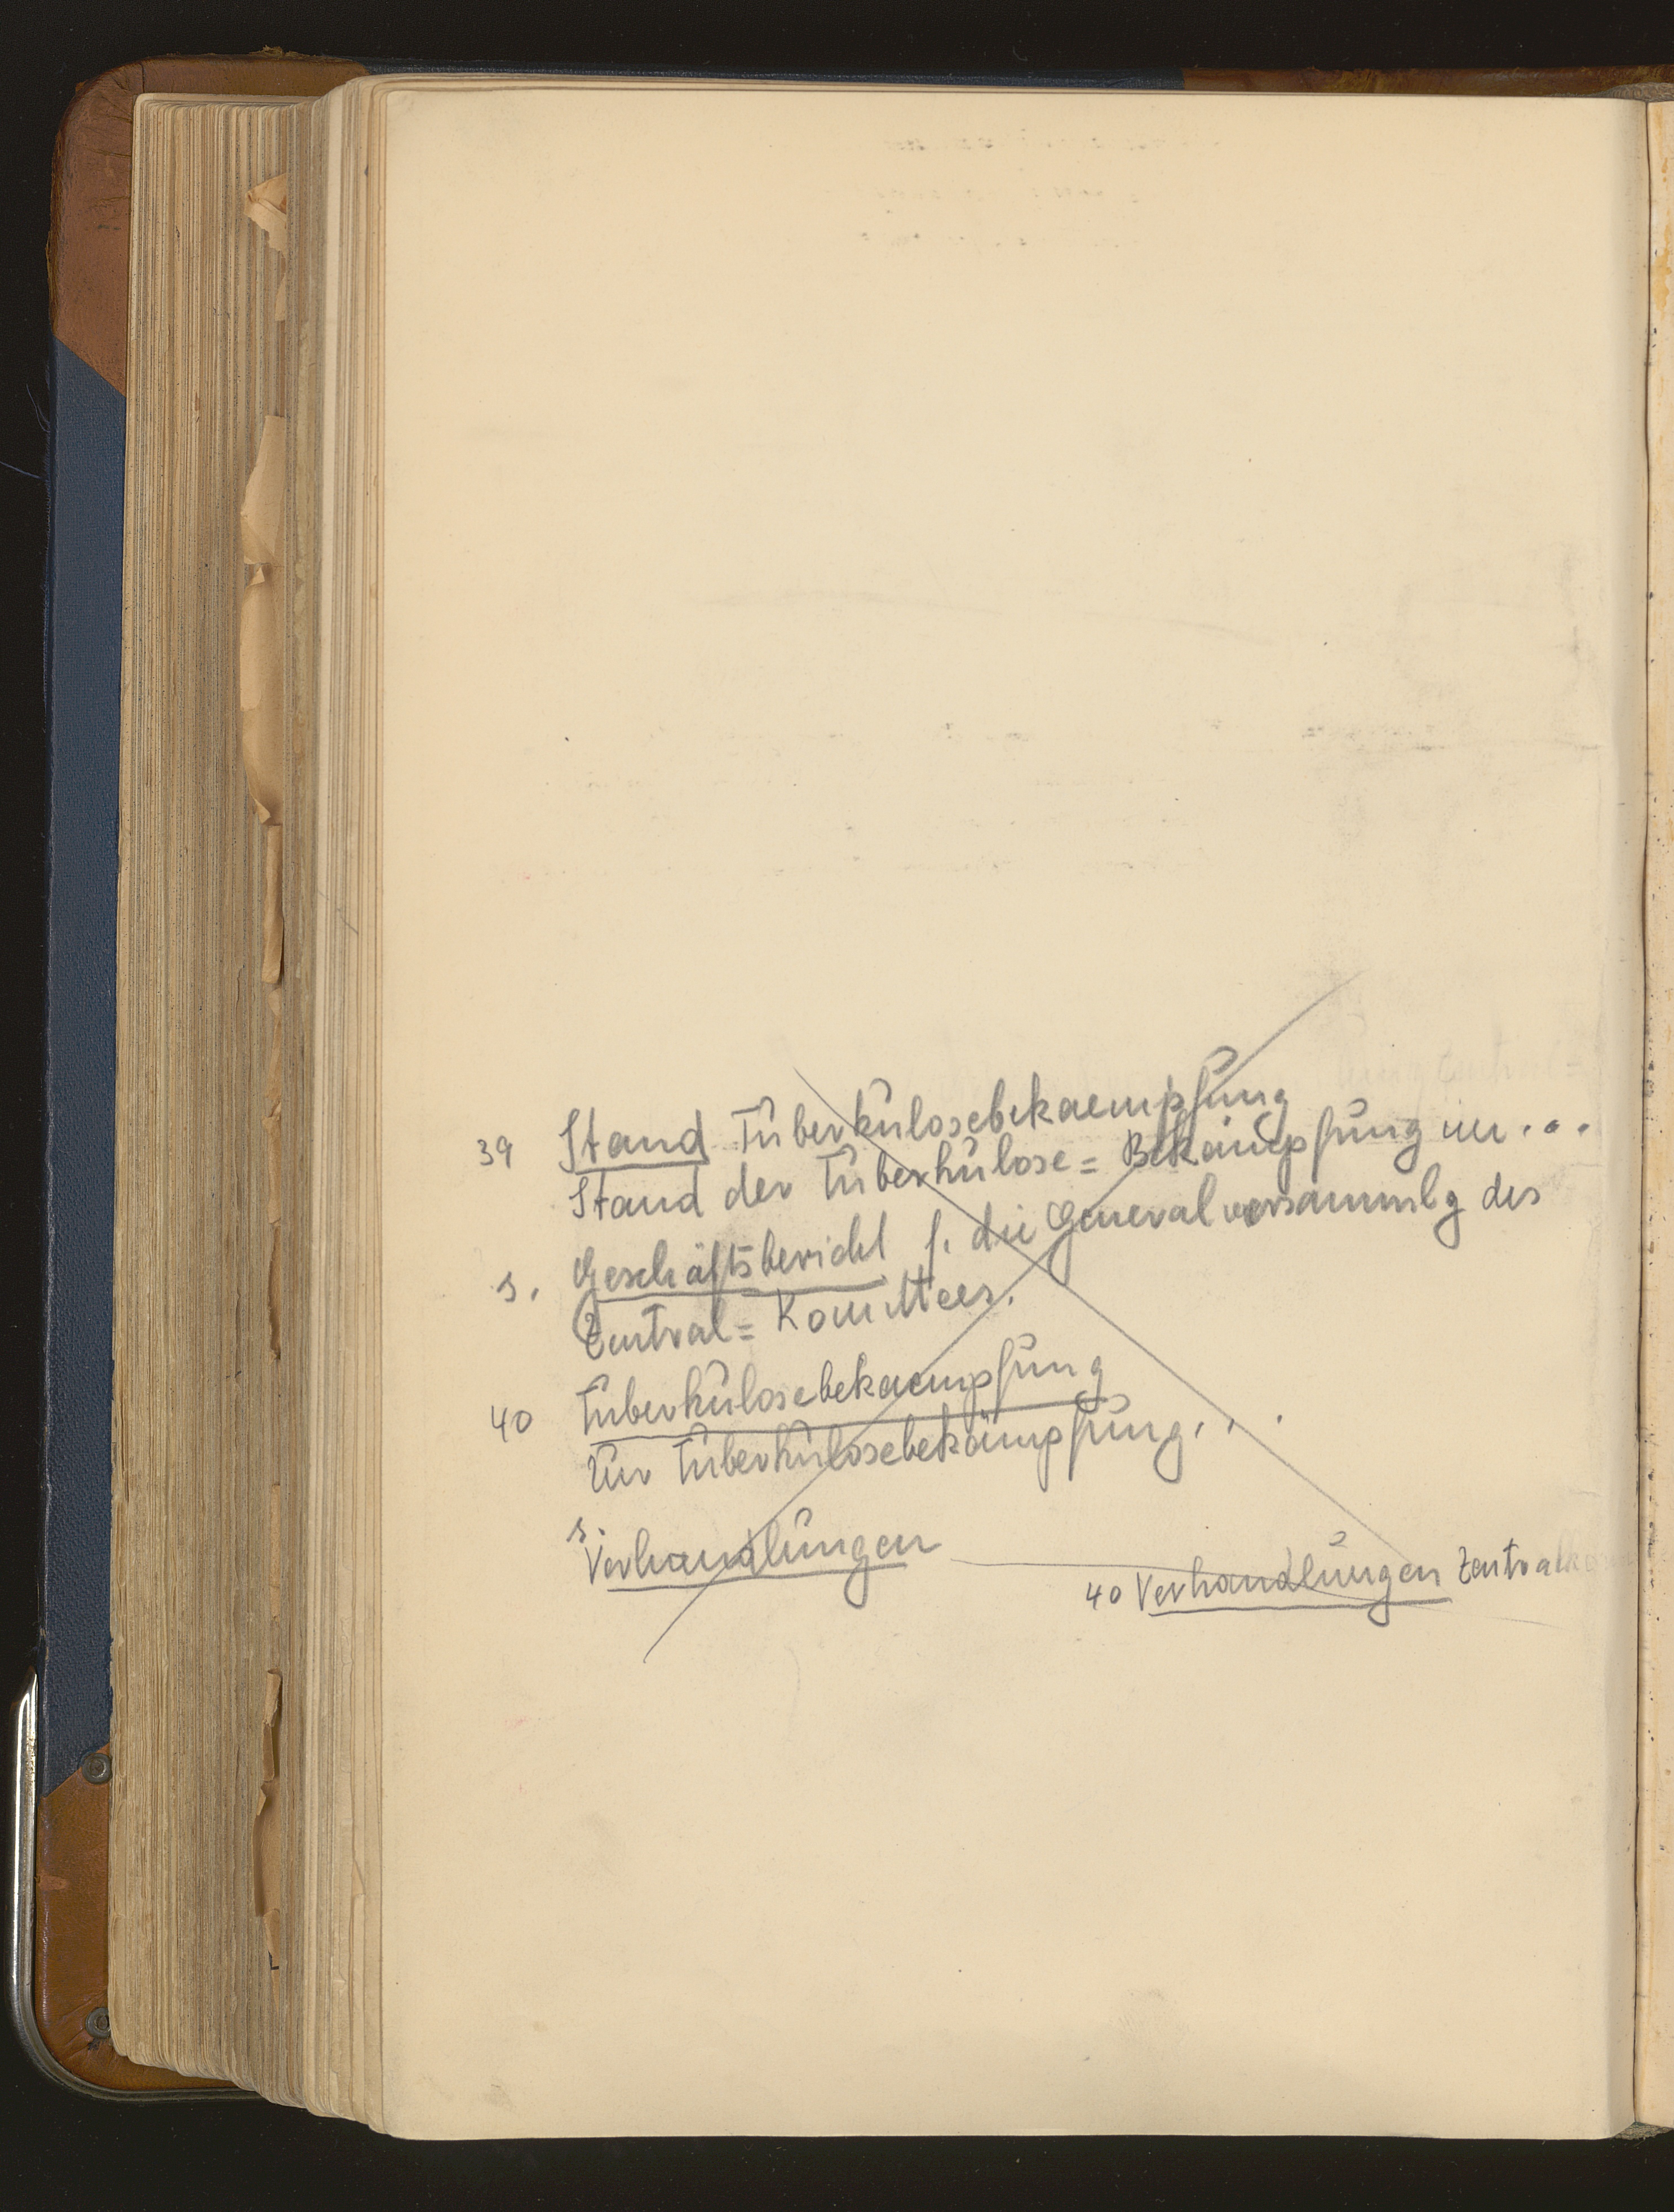 39 Stand Tuberkulosebekaempfung
Stand der Tuberkulose= Bekämpfung im...
s. Geschäftsbericht f. die Generalversammlg des
Zentral= Komittees.
40 Tuberkulosebekaempfung
Zur Tuberkulosebekämpfung...
s. Verhandlungen
40 Verhandlungen